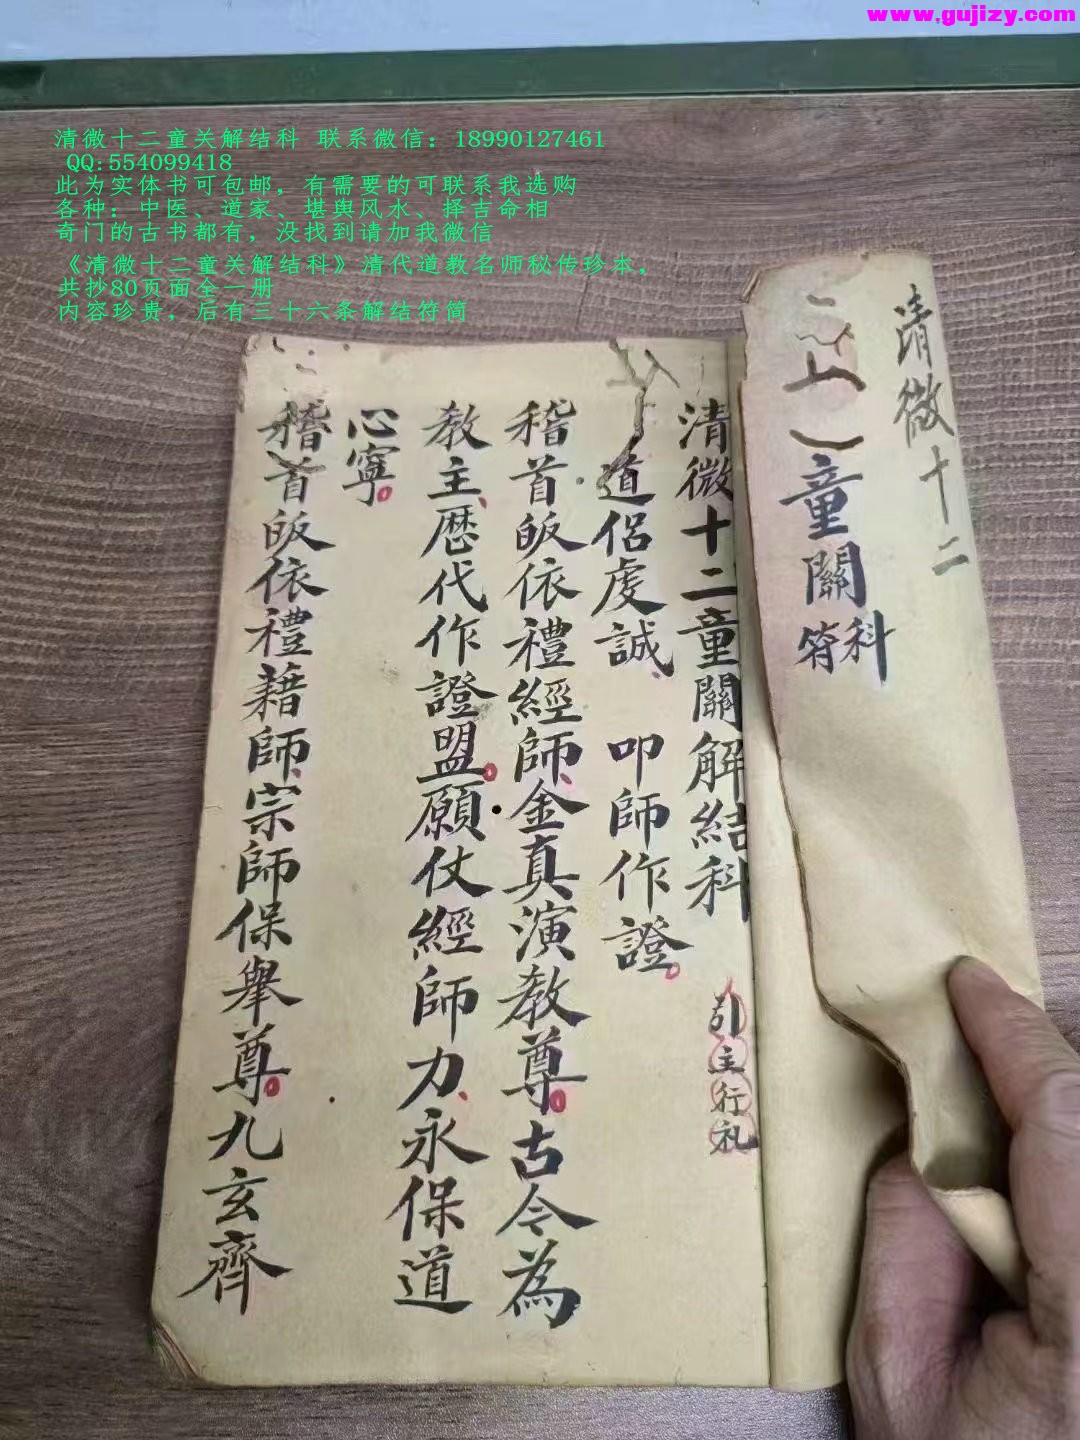 www.gujizy.com
清微十二童关解结科 联系微信：18990127461
QQ:554099418
此为实体书可包邮，有需要的可联系我选购
各种：中医、道家、堪舆风水、择吉命相
奇门的古书都有，没找到请加我微信
《清微十二童关解结科》清代道教名师秘传珍本，
共抄80页面全一册
内容珍贵，后有三十六条解结符简
清微十二
童關
符科
清微十二童關解結科
引主行礼
道侣虔誠、叩師作證。
稽首皈依禮經師、金真演教尊。古今為
教主、歷代作證盟。願仗經師力、永保道
心寧。
稽首皈依禮藉師、宗師保舉尊。九玄齊